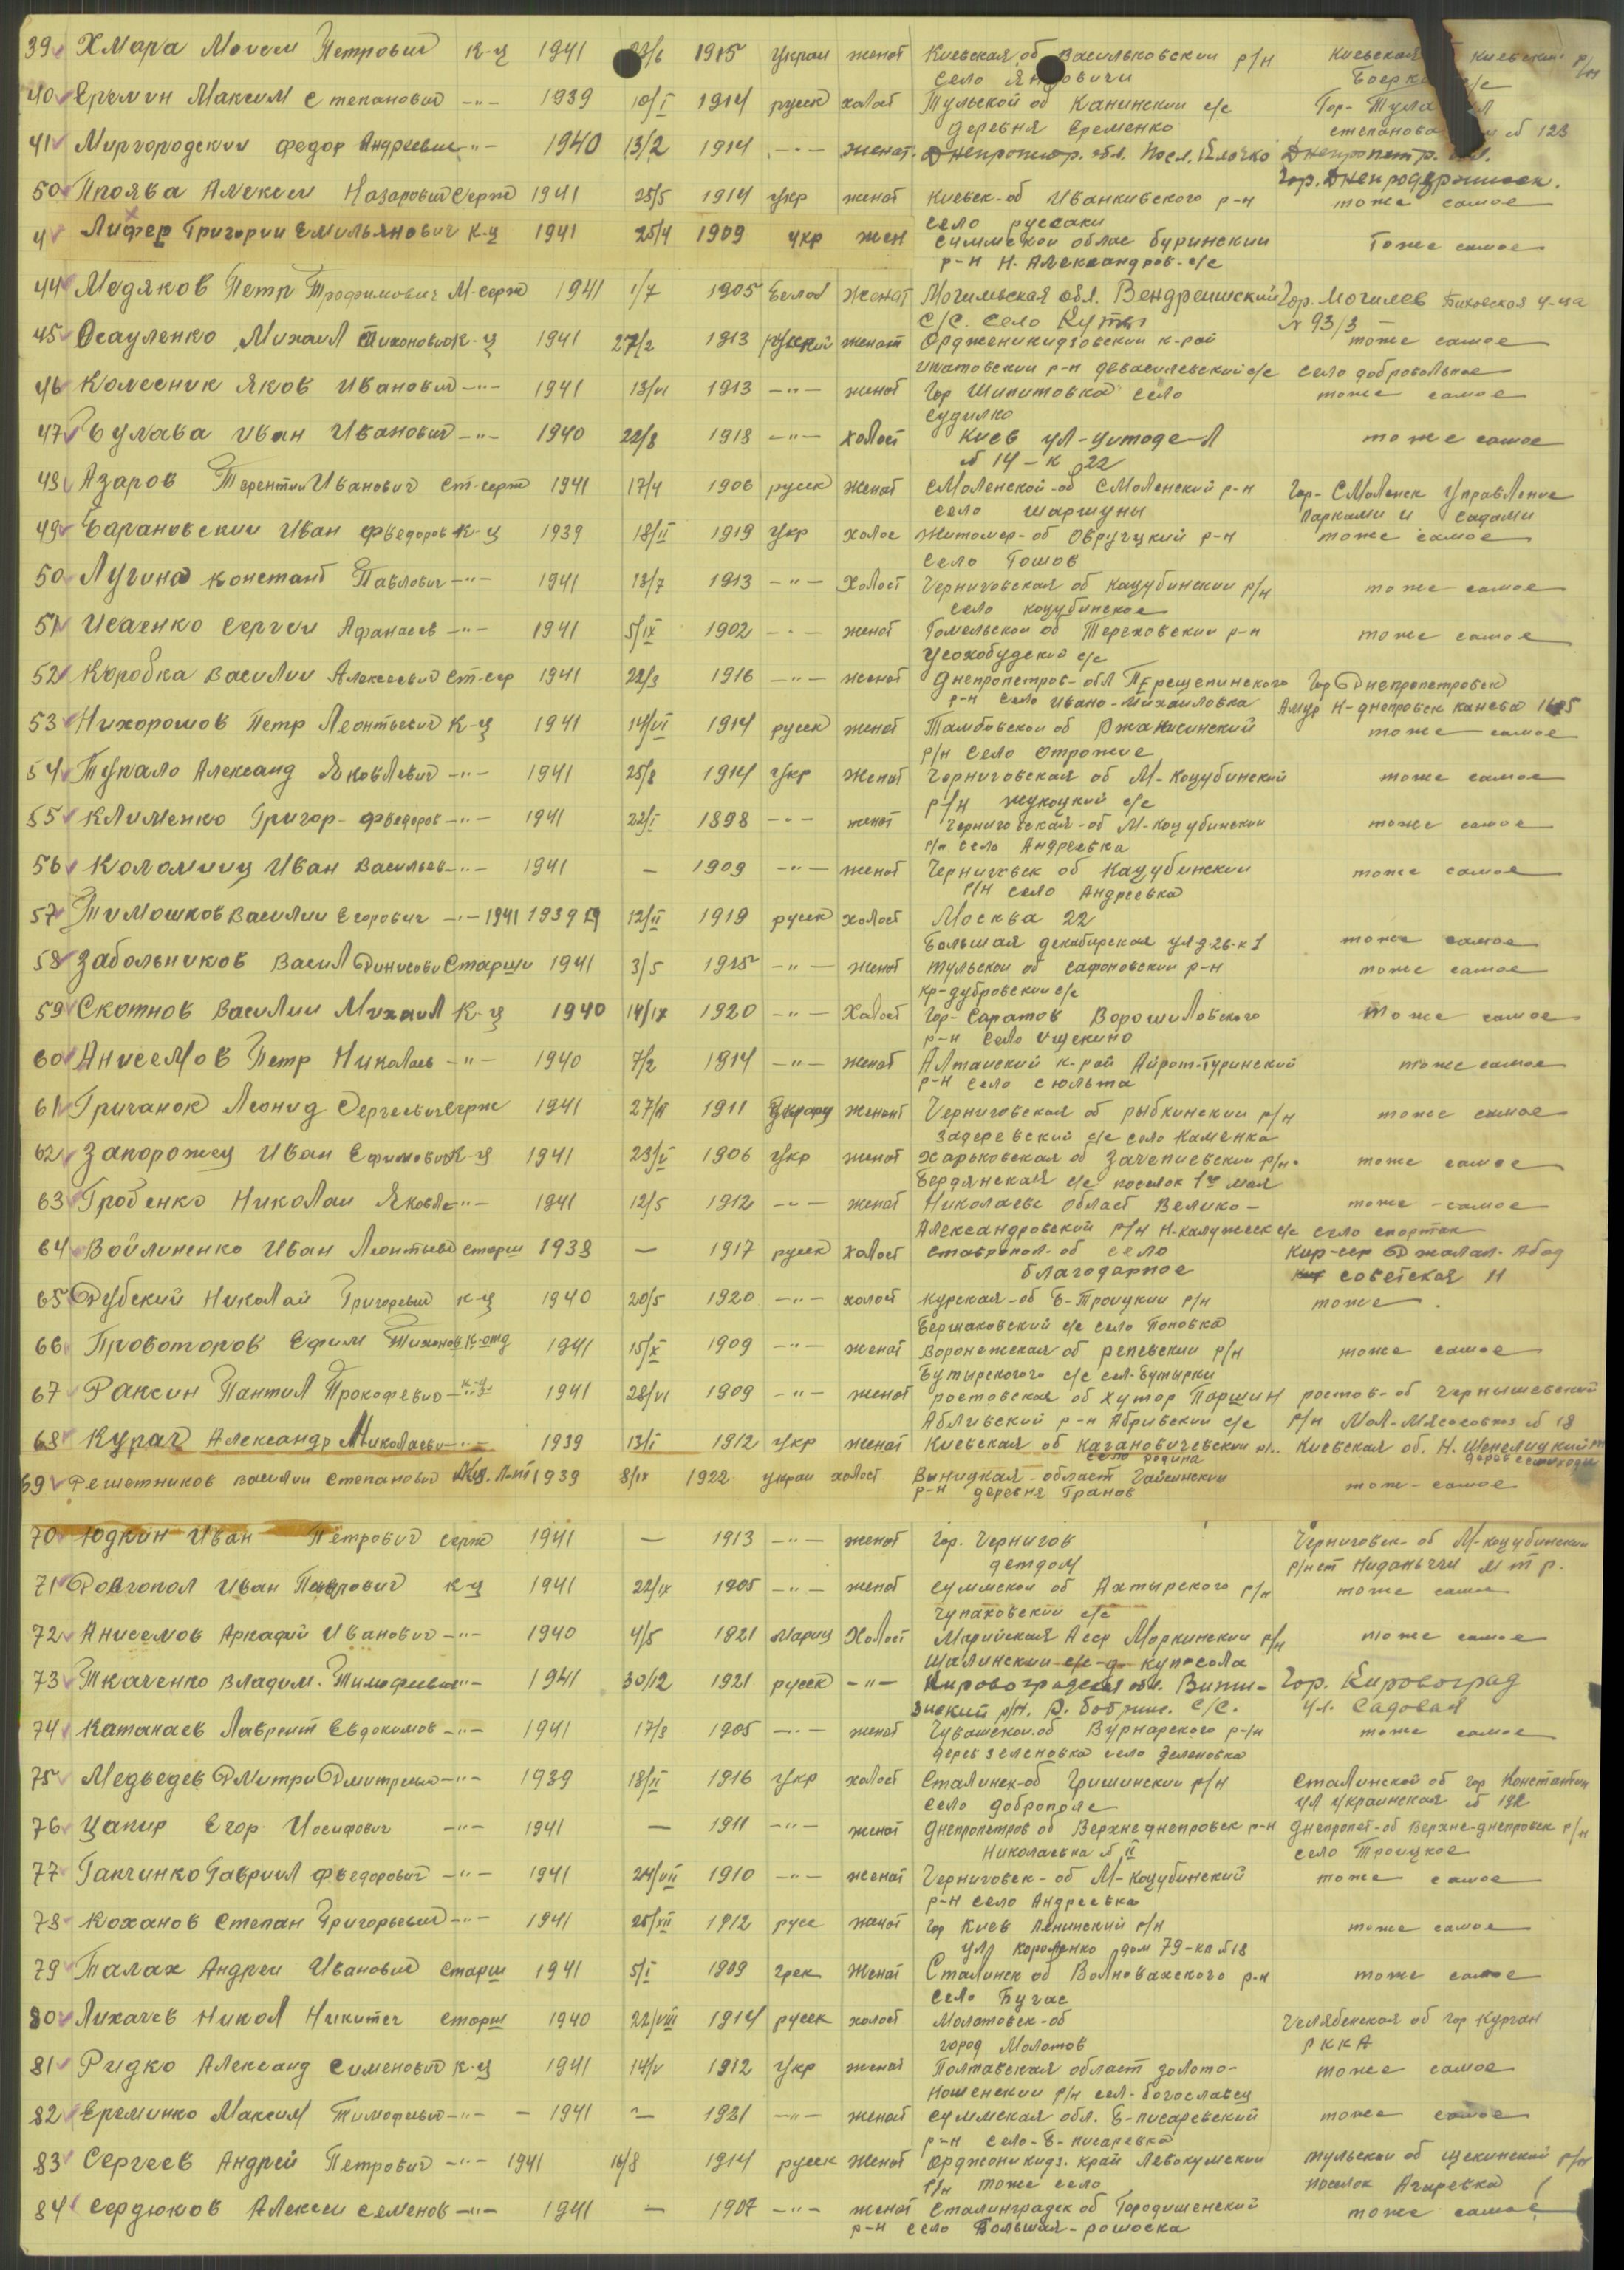 39 Хмара Моисей Петрович к-ц 1941 /6 1915 украи женат Киевская об Васильковский р/н Киевская Киевский р/н
село Боерк с/с
40 Еремин Максим Степанович -"- 1939 10/I 1914 русск холост Тульской об Канинский с/с Гор- Тула
деревня Еременко степанова № 123
41 Миргородский Федор Андреевич -"- 1940 13/2 1914 -"- женат. Днепропетр. обл. Посл. Клочко Днепропетр. обл.
Гор. Днепродзержинск.
50 Алексей Назарович Серж 1941 25/5 1914 укр женат Киевск-об Иванкивского р-н тоже самое
село руссаки
4 Лифер Григории Емильянович к-ц 1941 25/4 1909 укр жен Суммской облас буринский Тоже самое
р-н Н. Александров-с/с
44 Медяков Петр Трофимович М-серж 1941 1/7 1905 Белор женат Могильская обл. Вендрешский Гор. Могилев Биховская у-ца
с/с. село Куты № 93/3
45 Осауленко Михаил Тихонович к-ц 1941 27/2 1913 женат Орджоникидзовский к-рай тоже самое
ипатовский р-н с/с село добровольное
46 Колесник Яков Иванович -"- 1941 13/VI 1913 -"- женат Гор Шипитовка село тоже самое
судилко
47 Булава Иван Иванович -"- 1940 22/8 1918 -"- холост Киев ул- тоже самое
№ 14 - к 22
48 Азаров Терентии Иванович ст-серж 1941 17/4 1906 русск женат Смоленской-об Смоленский р-н Гор- Смоленск Управление
село шаршуны Парками и садами
49 Барановский Иван Фведоров к-ц 1939 18/II 1919 укр холос Житомер-об Овручцкий р-н тоже самое
село Гошов
50 Лугина Констант Павлович -"- 1941 13/7 1913 -"- холост Черниговская об Кацубинский р/н тоже самое
село коцубинское
51 Исаенко Сергей Афанасев -"- 1941 5/IX 1902 -"- женат Гомельской об Тереховский р-н тоже самое
Усохобудский с/с
52 Коробка Василии Алексеевич ст-сер 1941 22/3 1916 -"- женат Днепропетров-обл Перещепинского Гор Днепропетровск
р-н село Ивано-Михаиловка Амур Н-днепровск канева
53 Нихорошов Петр Леонтьевич к-ц 1941 14/VI 1914 русск женат Тамбовской об Ржаксинский тоже самое
р/н село отрожие
54 Тупало Александ Яковлевич -"- 1941 25/8 1914 укр женат Черниговская об М-коцубинский тоже самое
р/н жукоцкий с/с
55 Клименко Григор- Фведоров -"- 1941 22/I 1898 -"- женат Черниговская-об М-коцубинский тоже самое
р/н село Андреевка
56 Коломииц Иван Васильев -"- 1941 — 1909 -"- женат Черниговск об Кацубинский тоже самое
р/н село Андреевка
57 Тимошков Василии Егорович -"- 1941 1939 12/II 1919 русск холост Москва 22
Большая декабирская ул д-26-к1 тоже самое
58 Забольников Васил Динисови Старши 1941 3/5 1915 -"- женат Тульской об сафоновский р-н тоже самое
кр-дубровский с/с
59 Скотнов Василии Михаил к-ц 1940 14/IX 1920 -"- Холост Гор- Саратов Ворошиловского тоже самое
р-н село Ищекино
60 Анисемов Петр Николаев -"- 1940 7/2 1914 -"- женат Алтайский к-рай Айрот-туринский тоже самое
р-н село сюльта
61 Гричанок Леонид Сергеевич серж 1941 27/ 1911 женат Черниговская об рыбкинский р/н тоже самое
задеревский с/с село Каменка
62 Запорожец Иван Ефимович к-ц 1941 23/I 1906 Укр женат Харьковская об Зачепиевский р/н. тоже самое
Бердянская с/с поселок 1го мая
63 Гробенко Николаи Яковле -"- 1941 12/5 1912 -"- женат Николаевс област Велико- тоже-самое
Александровский р/н Н-калужеск с/с село спартак
64 Войлиненко Иван Леонтьев старш 1938 — 1917 русск холост ставропол-об село Кир-сср Джалал-Абад
благодарное советская 11
65 Дубский Николай Григоревич к-ц 1940 20/5 1920 -"- холост курская-об Б-Троицкий р/н тоже.
Бершаковский с/с село Поповка
66 Провоторов Ефим Тихонов к-отд 1941 15/X 1909 -"- женат Воронежская об репевский р/н тоже самое
Бутырского с/с сел-Бутырки
67 Раксин Пантил Прокофевич -"- 1941 28/VI 1909 -"- женат ростовская об хутор Паршин ростов-об Чернышевский
Абливский р-н Абривский с/с р/н Мол-Мясосовхоз № 18
68 Курач Александр Николаеви -"- 1939 13/I 1912 укр женат Киевская об Кагановичевский р/. Киевская об. Н. Шепелицкий
село родина
69 Решотников василии степанович 1939 8/IX 1922 украи холост Виницкая-област Гайсинский тоже-самое
р-н деревня Гранов
70 Юдкин Иван Петрович серж 1941 — 1913 -"- женат Гор. Чернигов Черниговск-об М-коцубинский
детдом р/н ст Нидоньчги МТР.
71 Довгопол Иван Павлович к-ц 1941 22/IX 1905 -"- женат суммской об Ахтырского р/н тоже самое
Чупаховский с/с
72 Анисемов Аркадий Иванович -"- 1940 4/5 1921 мариц Холост Марийская Асср Моркинский р/н тоже самое
Шалинский с/с-д- купсола
73 Ткаченко Владим. Тимофеевич -"- 1941 30/12 1921 русск -"- Кировоградская обл. Вити- Гор. Кировоград
зиский р/н. В. бобрин. с/с. ул. Садовая
74 Катанаев Лаврент Евдокимов -"- 1941 17/8 1905 -"- женат Чувашской об Вурнарского р-н тоже самое
дерев зеленовка село Зеленовка
75 Медведев Дмитри Дмитреви -"- 1939 18/II 1916 укр холост Сталинск-об Гришинский р/н Сталинской об гор Константин
село доброполе ул украинская № 192
76 Цапир Егор Иосифович -"- 1941 — 1911 -"- женат Днепропетров об Верхнеднепровск р-н Днепропет-об Верхне-днепровск р/н
Николаевка № II село Троицкое
77 Гапчинко Гавриил Фведорович -"- 1941 24/VII 1910 -"- женат Черниговск-об М-коцубинский тоже самое
р-н село Андреевка
78 Коханов Степан Григорьевич -"- 1941 25/XII 1912 русс женат Гор Киев Ленинский р/н тоже самое
ул короленко дом 79-кв №18
79 Палах Андреи Иванович старш 1941 5/I 1909 грек Женат Сталинск об Волновахского р-н тоже самое
село Бугас
80 Лихачев Никол Никитич старш 1940 22/VIII 1914 русск холост Молотовск-об Челябенская об гор Курган
город Молотов РККА
81 Ридко Александ Сименович к-ц 1941 14/V 1912 Укр женат Полтавская област золото- тоже самое
ношенский р/н сел-богославец
82 Ереминко Максим Тимофеевич -"- 1941 — 1921 -"- женат суммская обл. Б-писаревский тоже самое
р-н село-Б-писаревка
83 Сергеев Андрей Петрович -"- 1941 16/8 1914 русск Женат орджоникидз. край Левокумский тульской об щекинский р/н
р/н тоже село поселок Агаревка
84 Сердюков Алексеи Семенов -"- 1941 — 1907 -"- женат Сталинградск об Городишенский тоже самое
р-н село Большая-рошоска